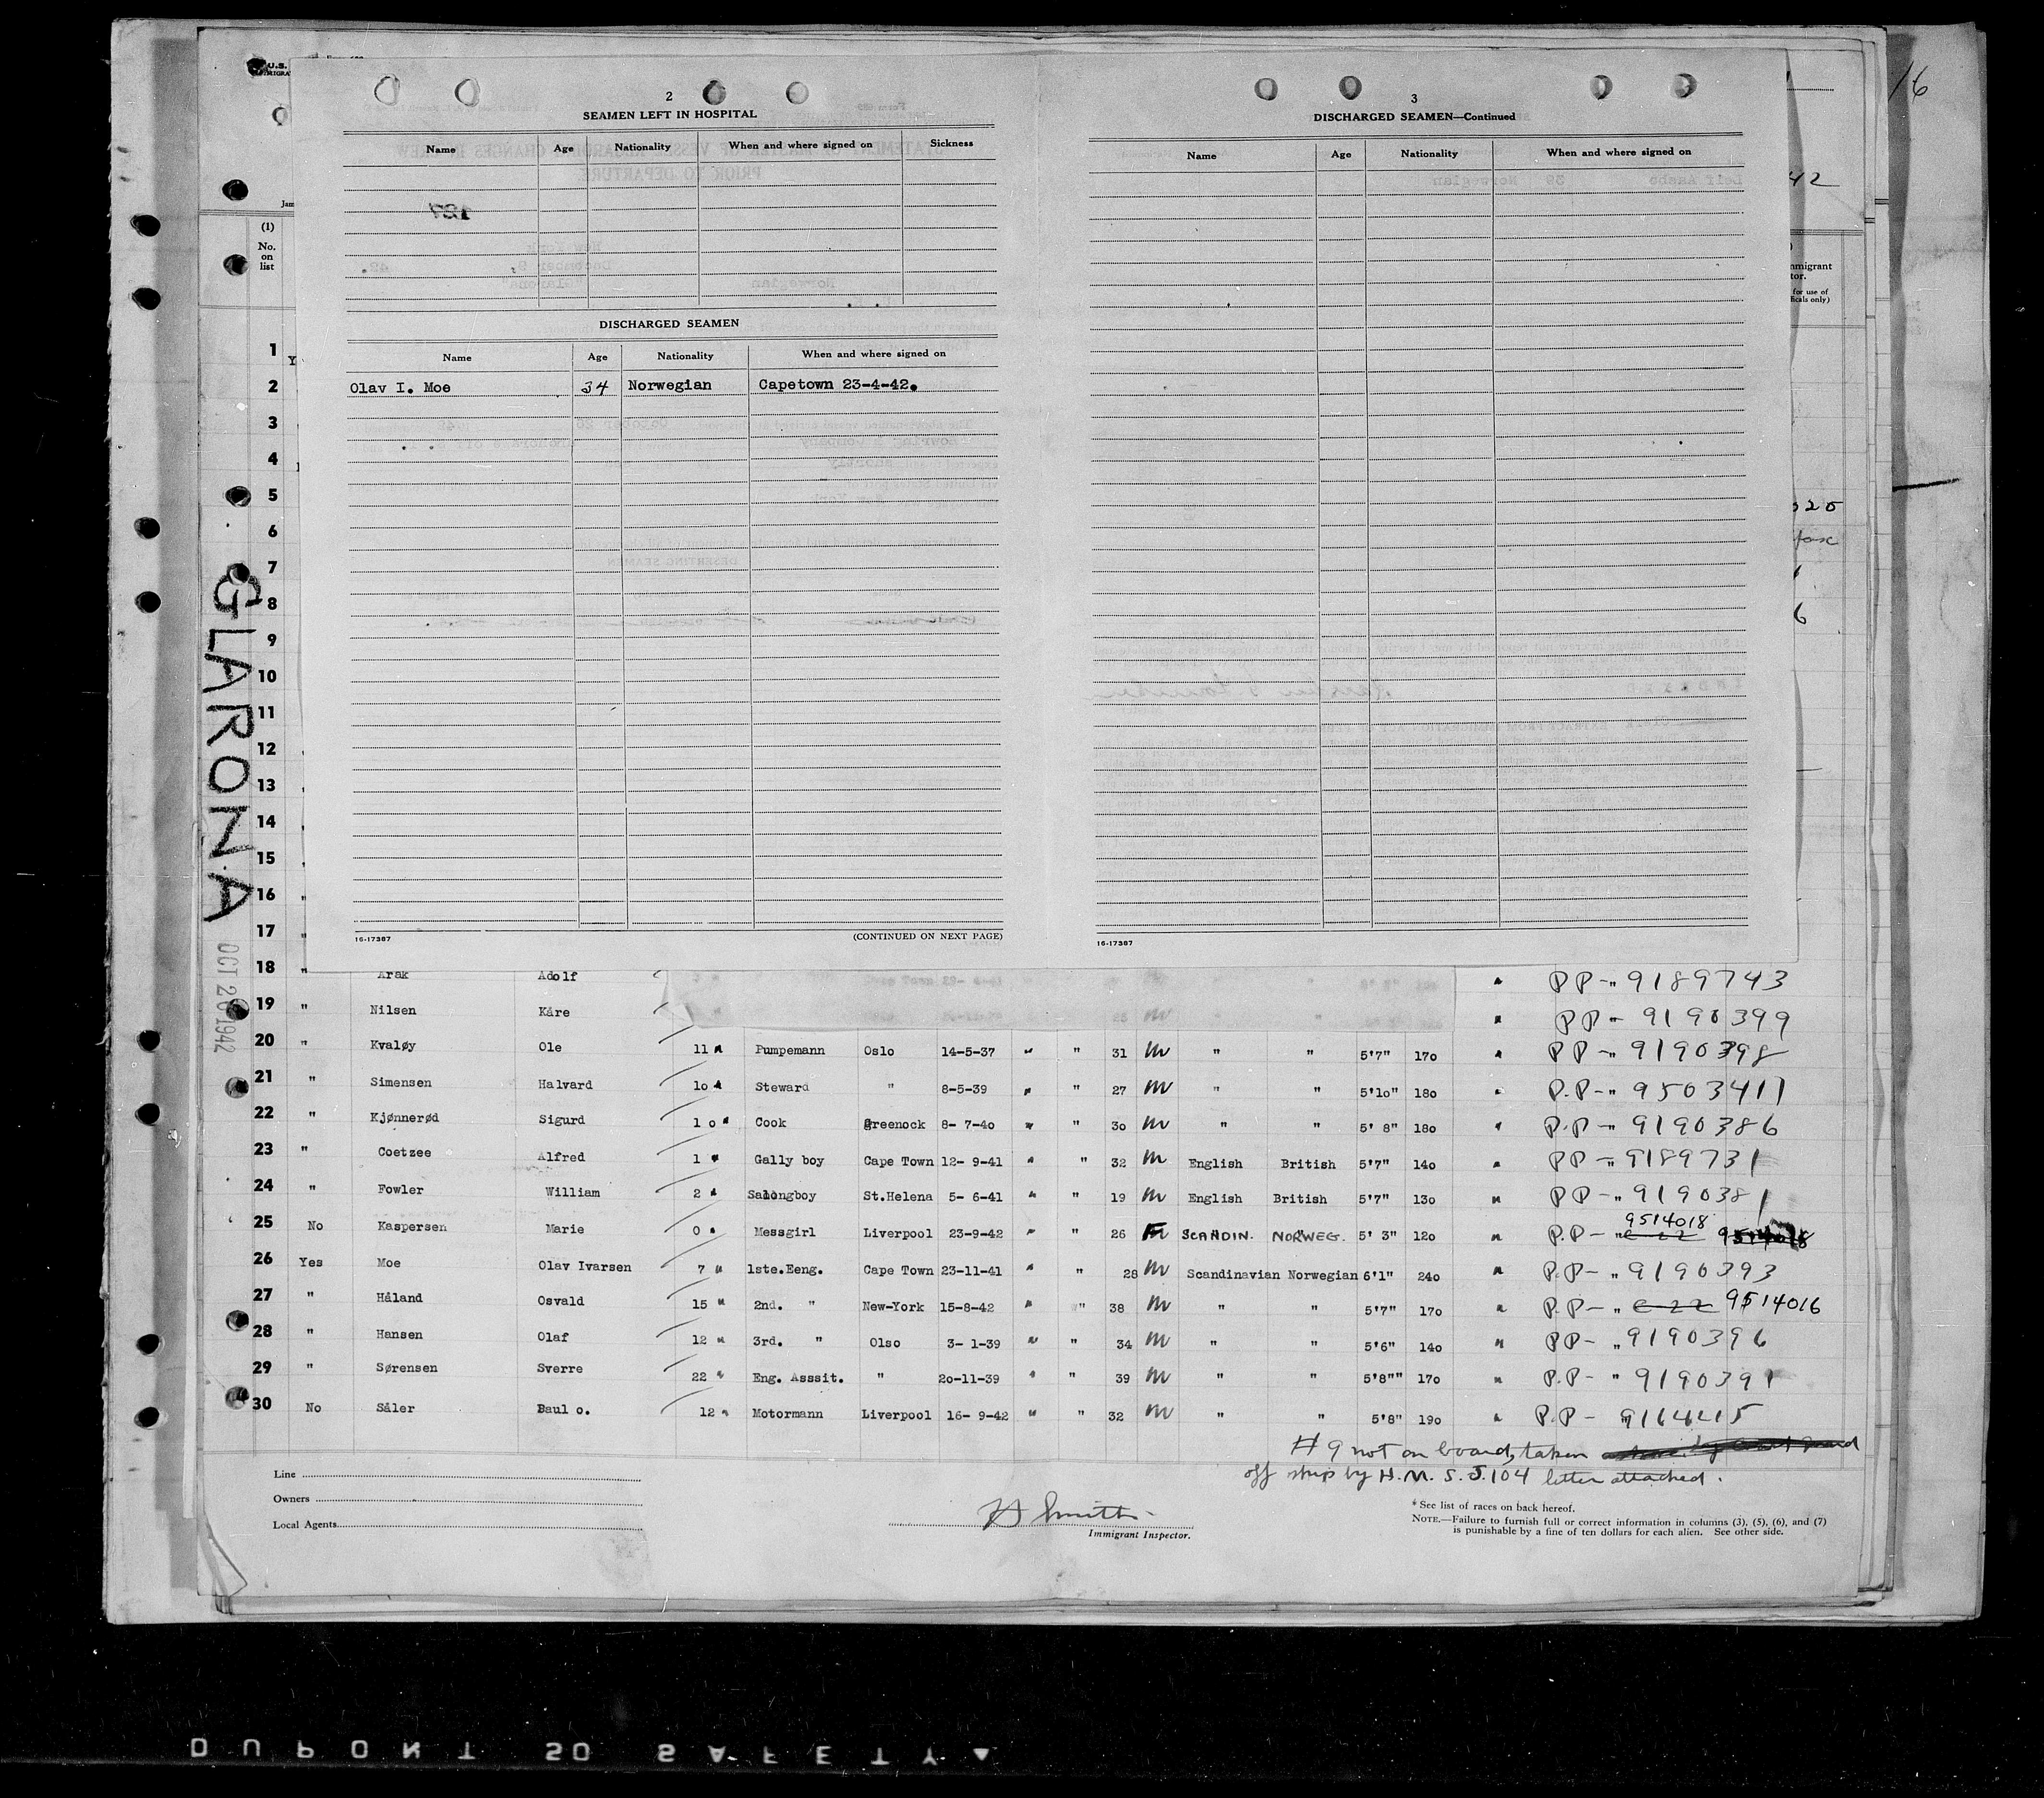 U.S.
16
2
SEAMEN LEFT IN HOSPITAL
Name Age Nationality When and where signed on Sickness
DISCHARGED SEAMEN
Name Age Nationality When and where signed on
Olav I. Moe 34 Norwegian Capetown 23-4-42.
16-17387 (CONTINUED ON NEXT PAGE)
3
DISCHARGED SEAMEN—Continued
Name Age Nationality When and where signed on
16-17387
42
(1)
No.
on
list
GLARONA
OCT 26 1942
1
2
3
4
5
6
7
8
9
10
11
12
13
14
15
16
17
18 " Arak Adolf " PP-" 9189743
19 " Nilsen Kåre " PP-" 9190399
20 " Kvaløy Ole 11 " Pumpemann Oslo 14-5-37 " " 31 m " " 5'7" 170 " PP-" 9190398
21 " Simensen Halvard 10 " Steward " 8-5-39 " " 27 m " " 5'10" 180 " P.P-" 9503411
22 " Kjønnerød Sigurd 10 " Cook greenock 8- 7-40 " " 30 m " " 5' 8" 180 " P.P-" 9190386
23 " Coetzee Alfred 1 " Gally boy Cape Town 12- 9-41 " " 32 m English British 5'7" 140 " PP-" 9189731
24 " Fowler William 2 " Salongboy St.Helena 5- 6-41 " " 19 m English British 5'7" 130 " PP-" 9190381
25 No Kaspersen Marie 0 " Messgirl Liverpool 23-9-42 " " 26 F SCANDIN. NORWEG. 5' 3" 120 " P.P-" 9514018
26 Yes Moe Olav Ivarsen 7 " 1ste.Eeng. Cape Town 23-11-41 " " 28 m Scandinavian Norwegian 6'1" 240 " P.P-" 9190393
27 " Håland Osvald 15 " 2nd. " New-York 15-8-42 " " 38 m " " 5'7" 170 " P.P-" 9514016
28 " Hansen Olaf 12 " 3rd. " Olso 3- 1-39 " " 34 m " " 5'6" 140 " PP-" 9190396
29 " Sørensen Sverre 22 " Eng. Asssit. " 20-11-39 " " 39 m " " 5'8"" 170 " P.P-" 9190391
30 No Såler Baul o. 12 " Motormann Liverpool 16- 9-42 " " 32 m " " 5'8" 190 " P.P- 9164415
# 9 not on board, taken
off ship by H.M.S. J.104 letter attached.
Line
Owners
Local Agents
H Smith
Immigrant Inspector.
* See list of races on back hereof.
NOTE.—Failure to furnish full or correct information in columns (3), (5), (6), and (7)
is punishable by a fine of ten dollars for each alien. See other side.
DUPONT SO SAFETY